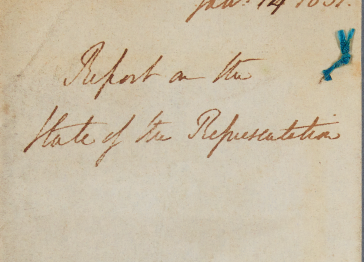 Jan: 14 1831.
Report on the
State of the Representation